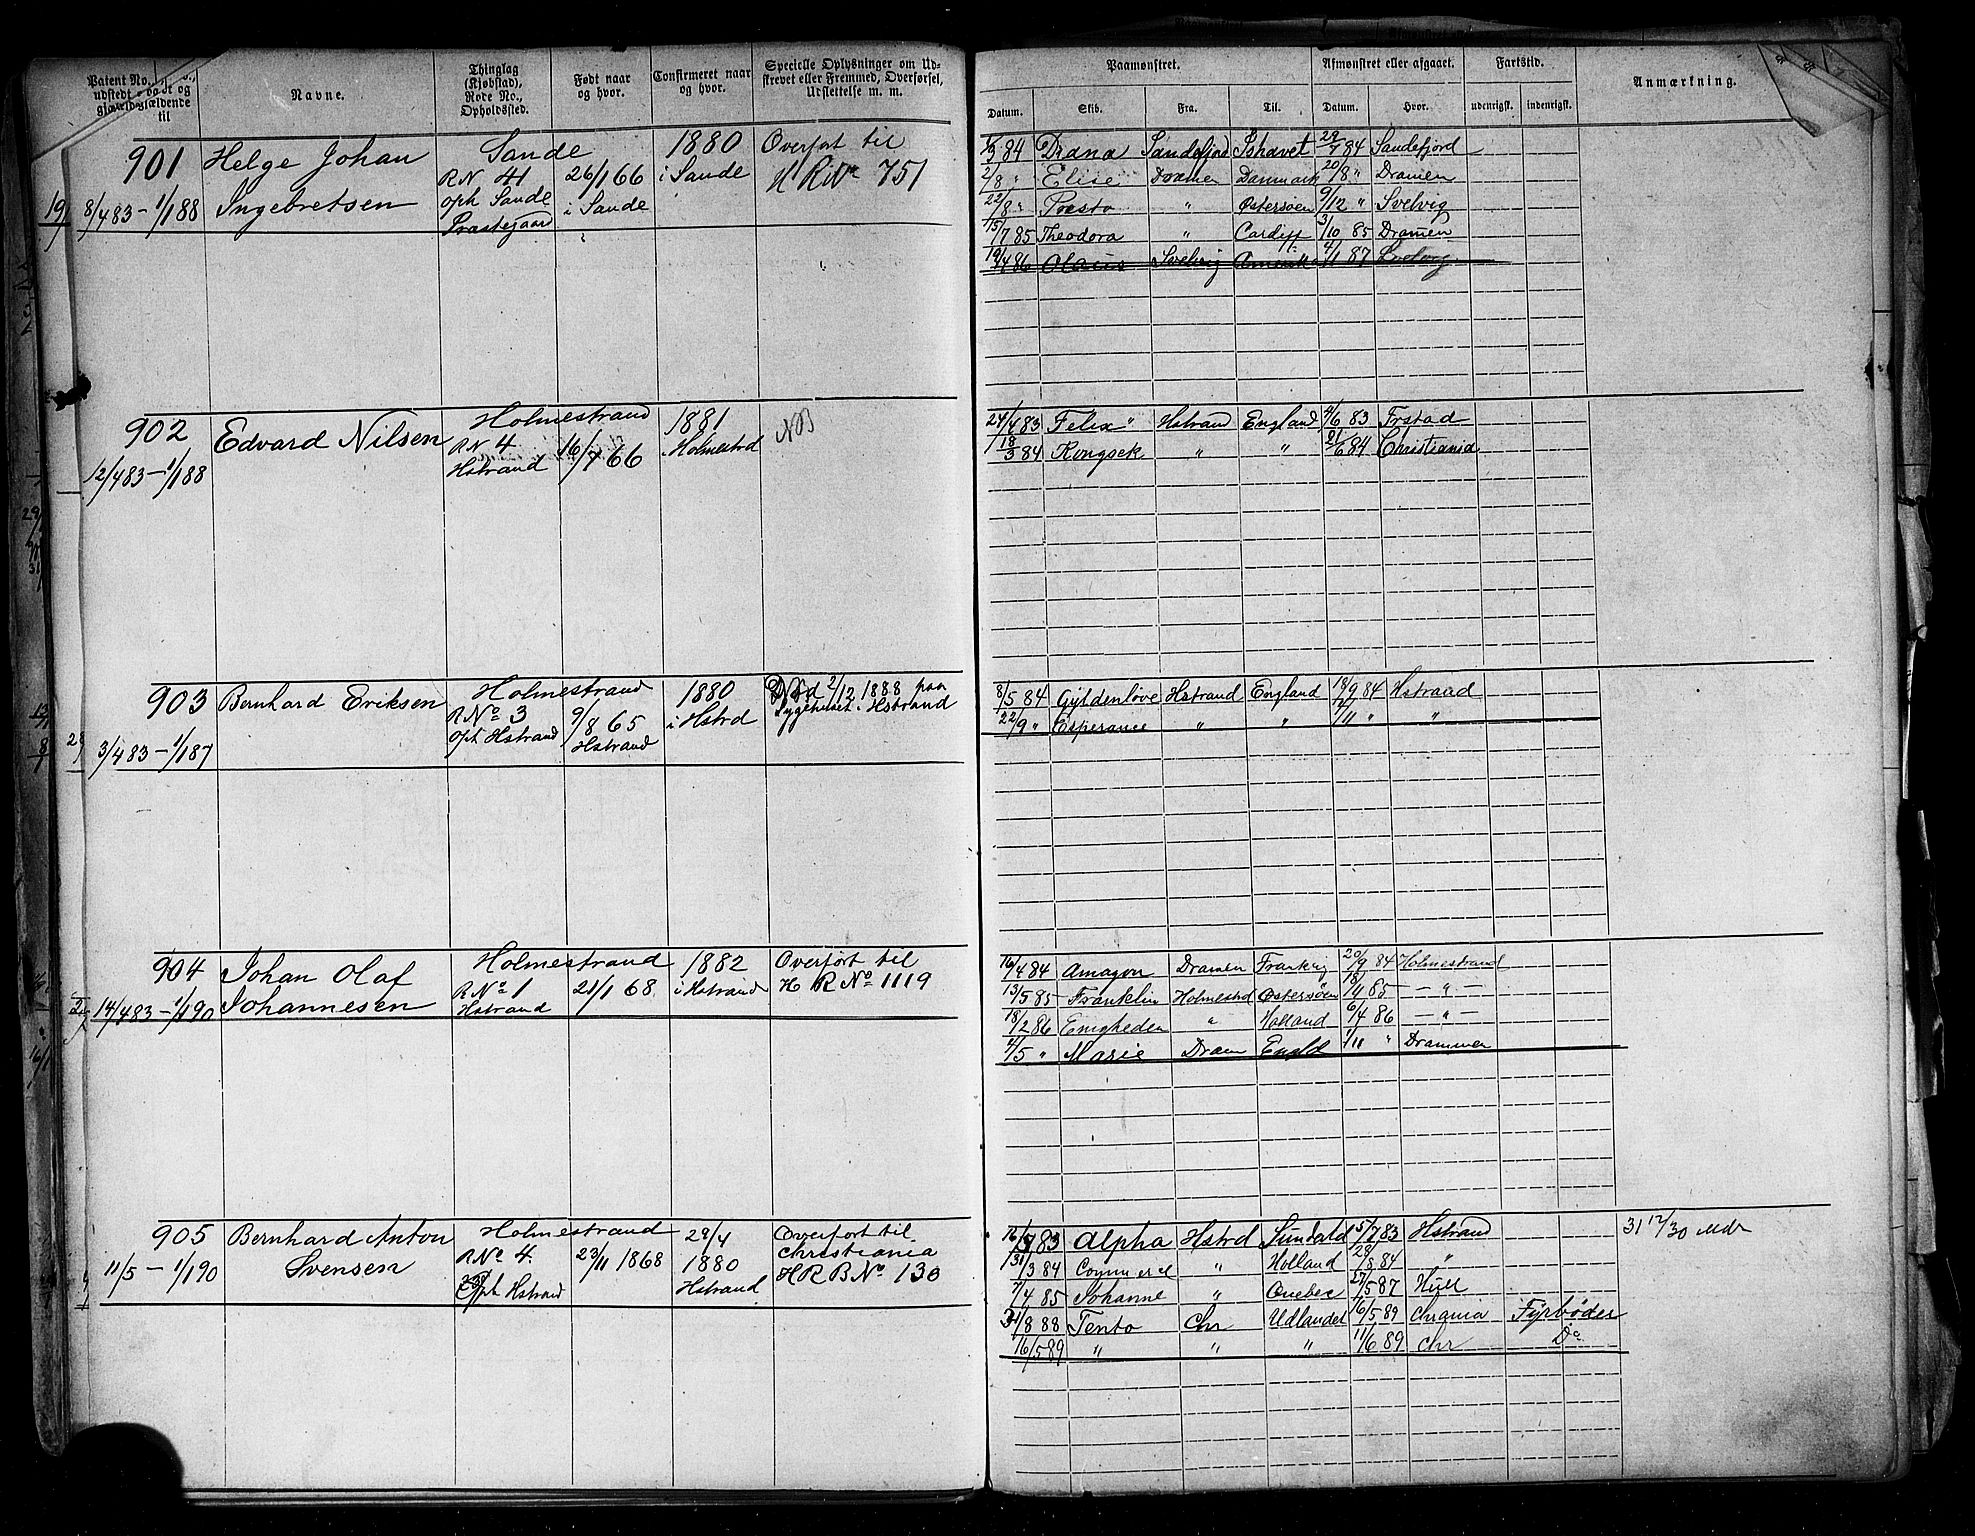 Patent No.
udstedt
gjældende
til
Navne.
Thinglag
(Kjøbstad),
Rode No.,
Opholdssted.
Født naar
og hvor.
Confirmeret naar
og hvor.
Specielle Oplysninger om Ud-
skrevet eller Fremmed, Overførsel,
Udslettelse m. m.
Paamønstret.
Datum. Skib. Fra. Til.
Afmønstret eller afgaaet.
Datum. Hvor.
Fartstid.
udenrigsk. indenrigsk.
Anmærkning.
901
8/4 83 - 1/1 88
Helge Johan
Ingebretsen
Sande
RN 41
oph Sande
Præstegaard
26/1 66
i Sande
1880
i Sande
Overført til
H R No 751
84 Diana Sandefjord Ishavet 29/7 84 Sandefjord
2/8 " Elise Dramen Danmark 20/8 " Dramen
22/8 " Presto " Østersøen 9/12 " Svelvig
15/7 85 Theodora " Cardiff 31/10 85 Dramen
19/4 86 Olaus Svelvig Amerika 4/1 87
902
12/4 83 - 1/1 88
Edvard Nilsen
Holmestrand
RN 4
Hstrand
16/7 66
1881
Holmestrd
NB
24/4 83 Felix Hstrand England 4/6 83 Frstad
18/3 84 Kongsek " " 21/6 84 Christiania
903
3/4 83 - 1/1 87
Bernhard Eriksen
Holmestrand
R No 3
oph Hstrand
9/8 65
Hstrand
1880
i Hstrd
Død 2/12 1888 paa
Sygehuset i Hstrand
8/5 84 Gyldenløve Hstrand England 18/9 84 Hstrand
22/9 " Esperance " " 17/11 " "
904
14/4 83 - 1/1 90
Johan Olaf
Johannesen
Holmestrand
R No 1
Hstrand
21/1 68
1882
i Hstrand
Overført til
H R No 1119
16/4 84 Amazon Dramen Frankrig 20/9 84 Holmestrand
13/5 85 Franklin Holmestrd Østersøen 18/11 85 - " -
18/2 86 Enigheden " Holland 6/4 86 - " -
4/5 " Marie Dram Engld 1/11 " Drammen
905
11/5 - 1/1 90
Bernhard Anton
Svensen
Holmestrand
R No 4
Oph Hstrand
23/11 1868
29/4
1880
Hstrand
Overført til
Christiania
H R B No 130
16/4 83 Alpha Hstrd Sundald 15/7 83 Hstrand
31/3 84 " Holland 28/8 84 "
7/4 85 Johanne " Quebec 27/5 87 Hull
31/8 88 Tento Chr Udlandet 16/5 89 Chrania Fyrbøder
16/5 89 " " " 11/6 89 Chr Do
31 17/30 Mdr